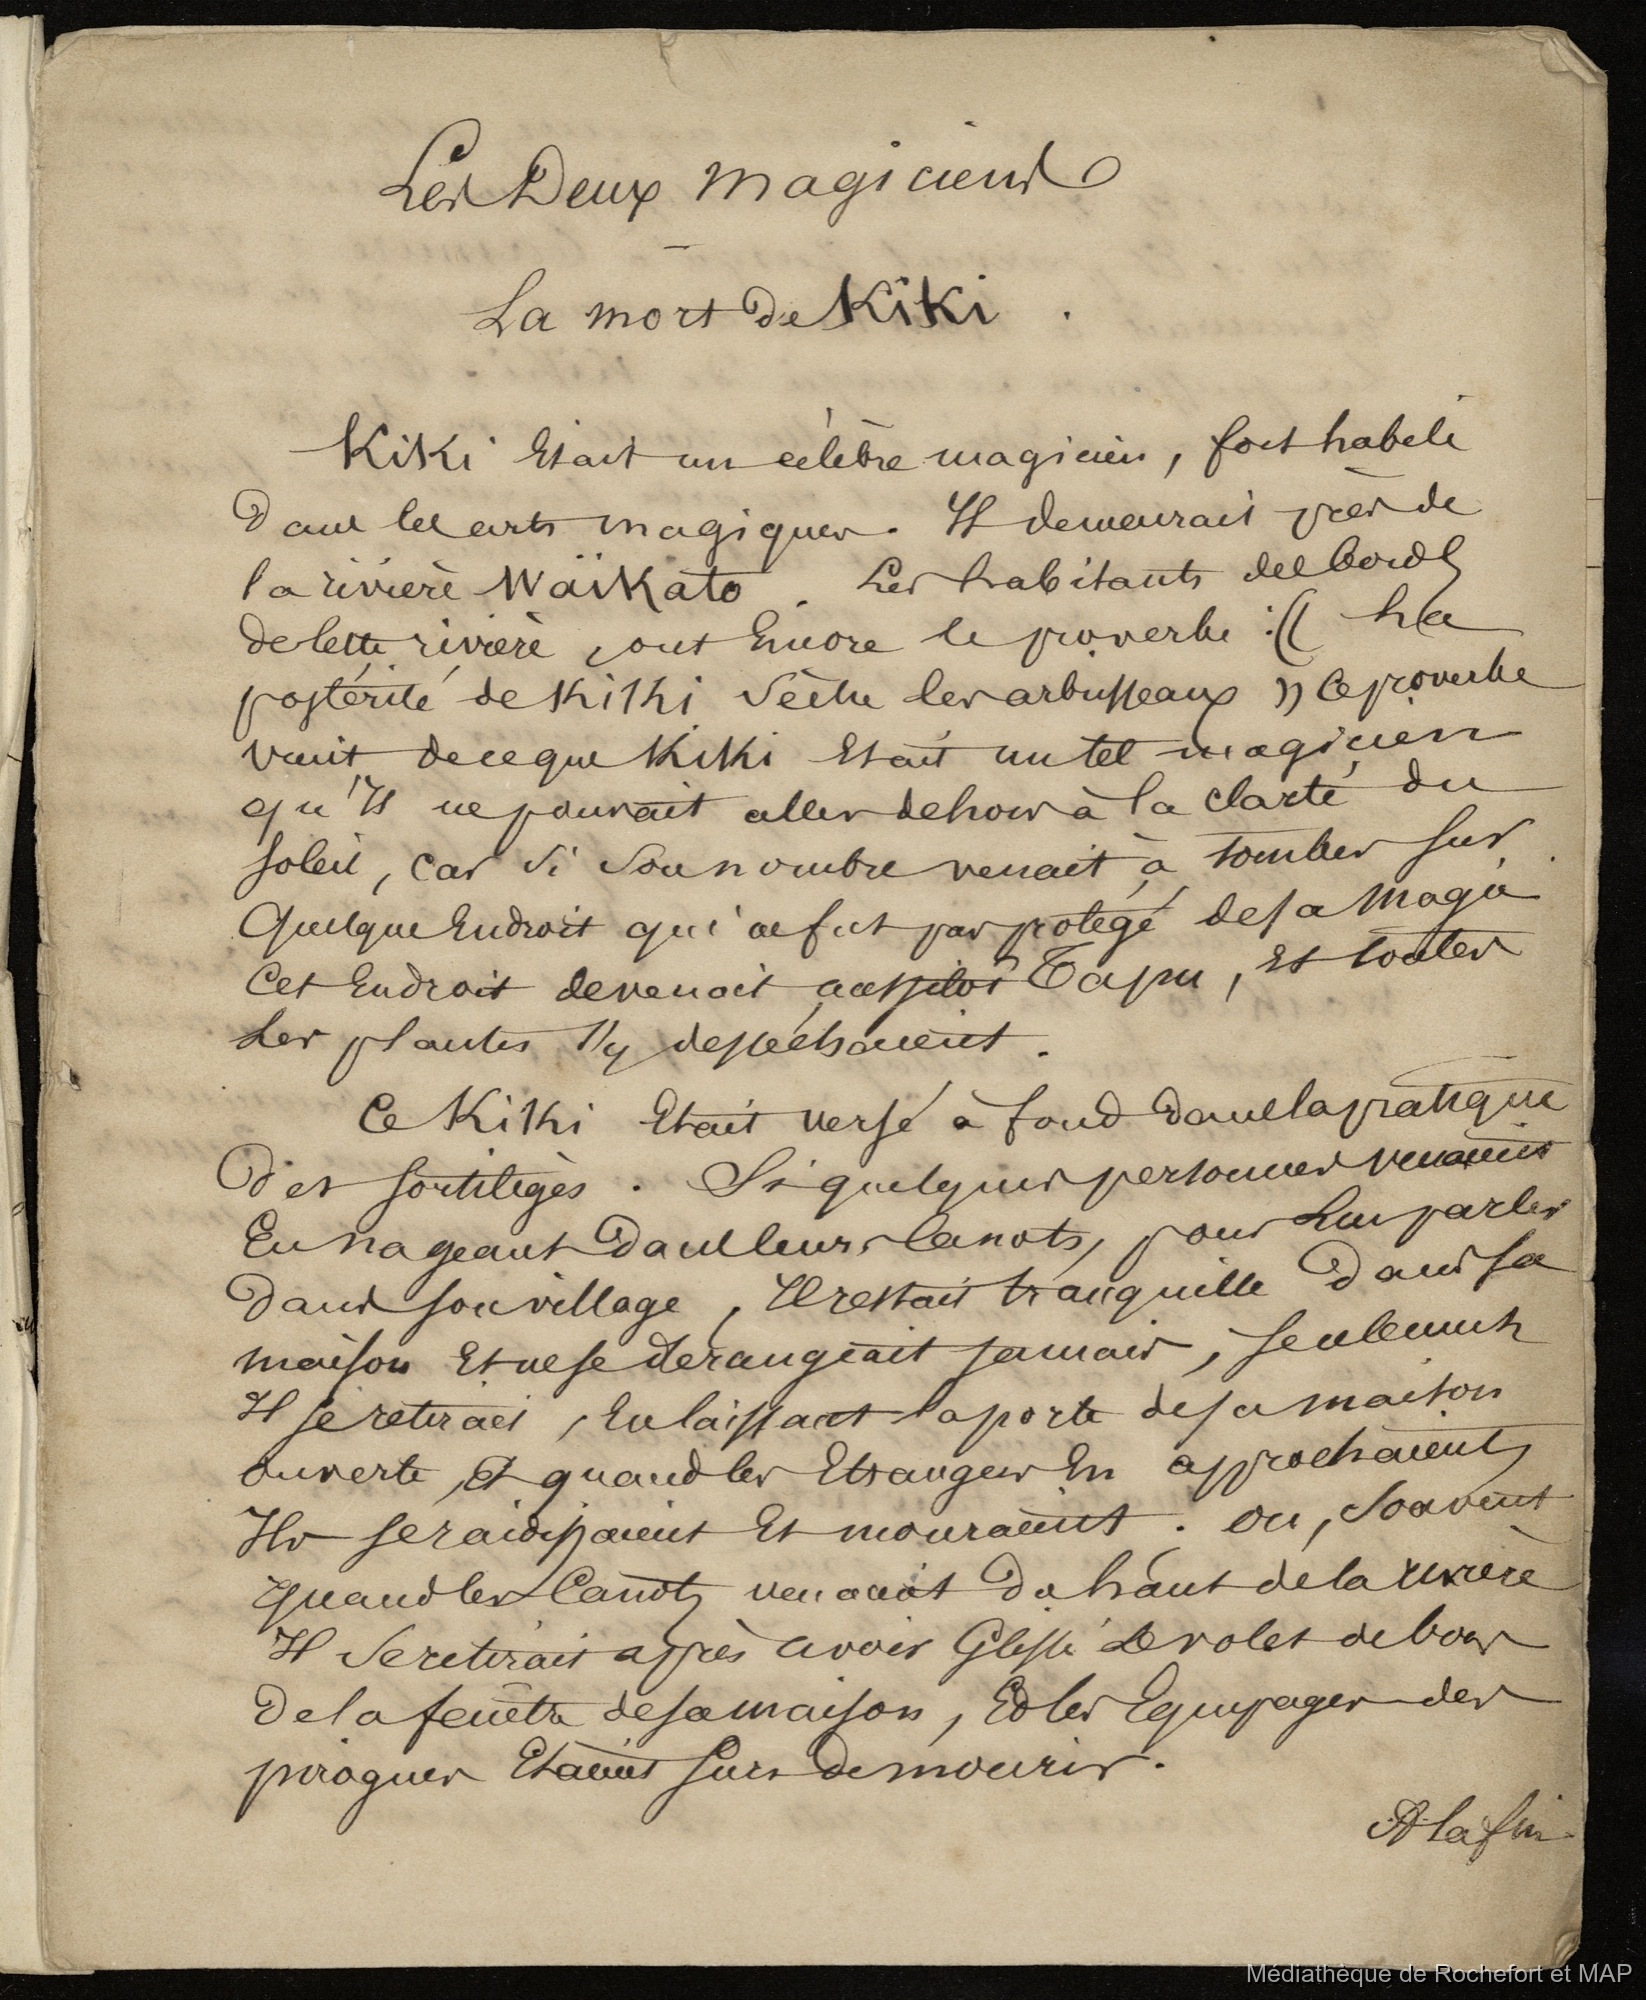 Les Deux magiciens
La mort de Kiki.
Kiki Etait un célèbre magicien, fort habile
Dans les arts magiques. Il demeurait près de
la rivière Waïkato. Les habitants des bords
de cette rivière, ont Encore le proverbe : (( La
postérité de Kiki sèche les arbrisseaux )) Ce proverbe
vient de ce que Kiki Etait un tel magicien
qu'Il ne pouvait aller dehors à la clarté du
soleil, car si son nombre venait à tomber sur
Quelque Endroit qui ne fut pas protégé de sa magie
Cet Endroit devenait aussitôt Tapu, Et toutes
Les plantes s'y desséchaient.
Ce Kiki Etait versé à fond dans la pratique
Des sortilèges. Si quelques personnes venaient
En nageant Dans leurs Canots, pour Lui parler
Dans son village, Il restait tranquille Dans sa
maison Et ne se dérangeait jamais, seulement
Il se retirait, En laissant la porte de sa maison
ouverte, Et quand les Etrangers En approchaient,
Ils se raidissaient Et mouraient. ou, Souvent
Quand les Canots venaient Du haut de la rivière
Il Se retirait après avoir Glissé Le volet de bois
De la fenêtre de sa maison, Et les Equipages des
pirogues Etaient surs de mourir.
A la fin
Médiathèque de Rochefort et MAP